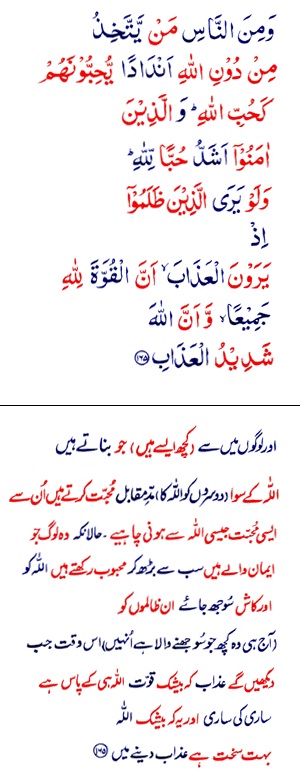 وَمِنَ النَّاسِ مَنْ يَّتَّخِذُ
مِنْ دُوْنِ اللّٰهِ اَنْدَادًا يُّحِبُّوْنَهُمْ
كَحُبِّ اللّٰهِ ؕ وَ الَّذِيْنَ
اٰمَنُوْۤا اَشَدُّ حُبًّا لِّلّٰهِ ؕ
وَلَوْ يَرَى الَّذِيْنَ ظَلَمُوْۤا
اِذْ
يَرَوْنَ الْعَذَابَ ۙ اَنَّ الْقُوَّةَ لِلّٰهِ
جَمِيْعًا ۙ وَّ اَنَّ اللّٰهَ
شَدِيْدُ الْعَذَابِ ﴿۱۶۵﴾
اور لوگوں میں سے (کچھ ایسے ہیں) جو بناتے ہیں
اللہ کے سوا (دوسروں کو اللہ کا) مدِّ مقابل مُحبّت کرتے ہیں اُن سے
ایسی مُحبّت جیسی اللہ سے ہونی چاہیے ۔ حالانکہ وہ لوگ جو
ایمان والے ہیں سب سے بڑھ کر محبوب رکھتے ہیں اللہ کو
اور کاش سُوجھ جائے ان ظالموں کو
(آج ہی وہ کچھ جو سُوجھنے والا ہے اُنہیں) اس وقت جب
دیکھیں گے عذاب کہ بیشک قوّت اللہ ہی کے پاس ہے
ساری کی ساری اور یہ کہ بیشک اللہ
بہت سخت ہے عذاب دینے میں ﴿۱۶۵﴾